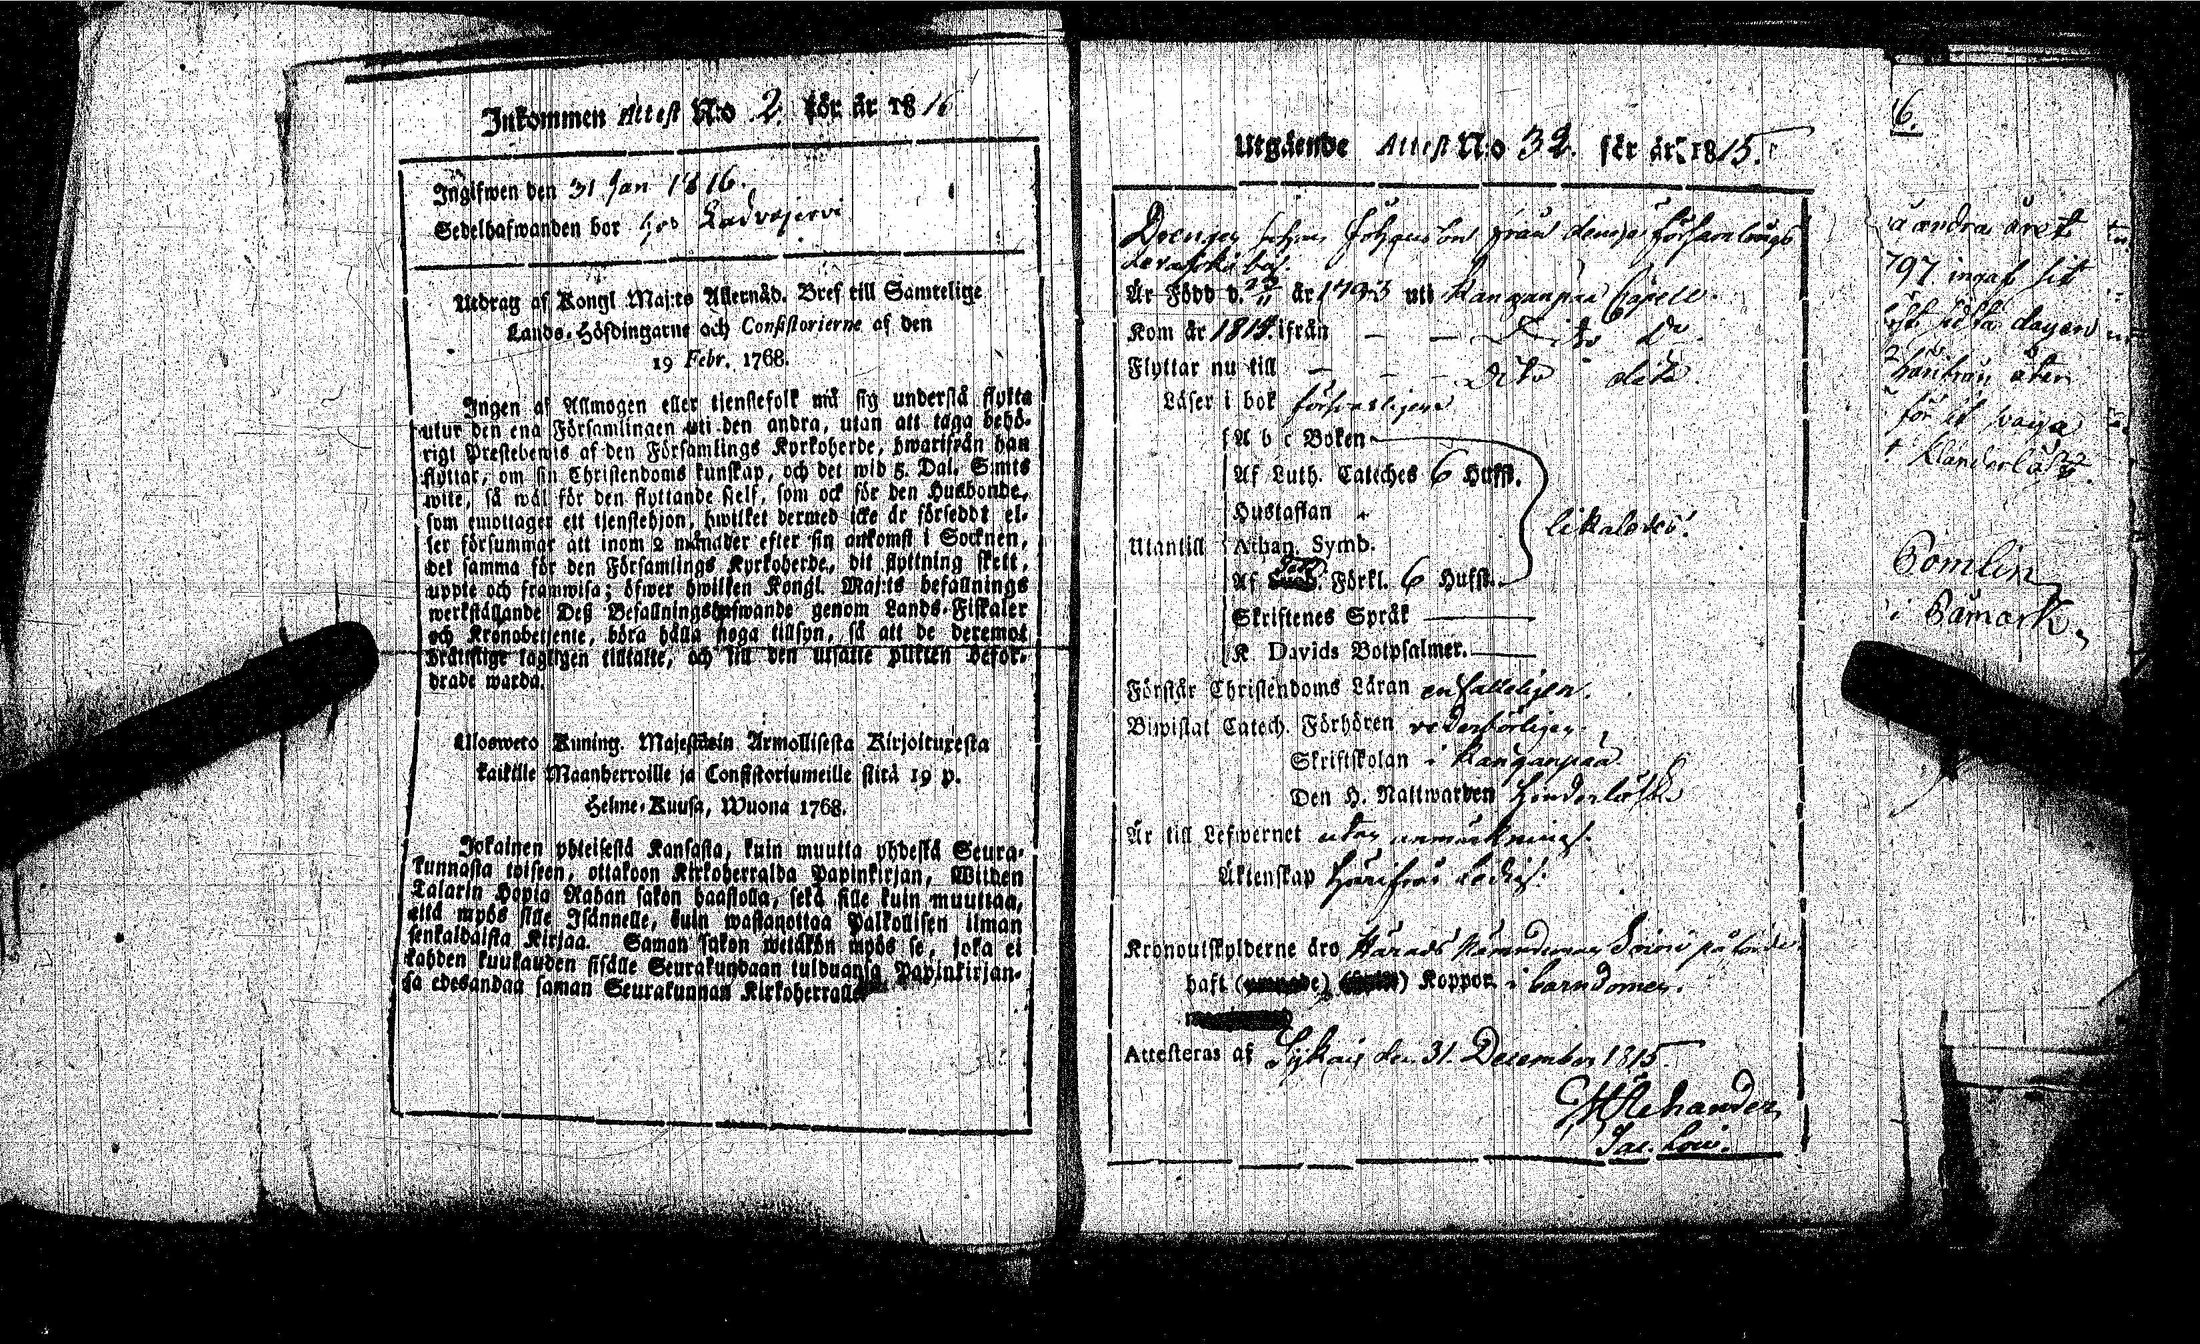 Inkommen Attest N:o 2. för år 1816
Ingifwen den 31 Jan 1816.
Sedelhafwanden bor hos Ladvajervi
Utdrag af Kongl Maj:ts Allernåd. Bref till Samtelige
Lands-Höfdingarne och Consistorierne af den
19 Febr. 1768.
Ingen af Allmogen eller tjenstefolk må sig understå flytta
utur den ena Församlingen uti den andra, utan att taga behö-
rigt Prestebewis af den Församlings Kyrkoherde, hwarifrån han
flyttar, om sin Christendoms kunskap, och det wid 5. Dal. S:mts
wite, så wäl för den flyttande sielf, som ock för den Husbonde,
som emottager ett tjenstehjon, hwilket dermed icke är försedt el-
ler försummar att inom 2 månader efter sin ankomst i Socknen,
det samma för den Församlings Kyrkoherde, dit flyttning skett,
uppte och framwisa; öfwer hwilken Kongl. Maj:ts befallnings
werkställande Deß Befallningshafwande genom Lands-Fiskaler
och Kronobetjente, böra hålla noga tillsyn, så att de deremot
bråttslige lagligen tilltalte, och till den utsatte plikten befor-
drade warda.
Ulosweto Kuning. Majestetin Armollisesta Kirjoituxesta
kaikille Maanherroille ja Consistoriumeille siitä 19 p.
Helme-Kuusa, Wuona 1768.
Jokainen yhteisestä Kansasta, kuin muutta yhdestä Seura-
kunnasta toiseen, ottakoon Kirkoherralda Papinkirjan, Wiiden
Talarin Hopia Rahan sakon haastolla, sekä sille kuin muuttaa,
että myös sille Isännelle, kuin wastanottaa Palkollisen ilman
senkaldaista Kirjaa. Saman sakon wetäkön myös se, joka ei
kahden kuukauden sisälle Seurakundaan tulduansa Papinkirjan-
sa edesandaa saman Seurakunnan Kirkoherralle
Utgående Attest N:o 32. för år 1815.
Drengen Johan Johansson från denna församlings
År Född d. 23/11 år 1793 uti Kanganpää Capell.
Kom år 1814. ifrån — — Dito Do.
Flyttar nu till — — — Dito dito.
Läser i bok försvarligen
A b c Boken
Af Luth. Cateches 6 Hufst.
Hustaflan
Utantill Athan. Symb.
Af Förkl. 6 Hufst.
likaledes!
Skriftenes Språk
K Davids Botpsalmer.
Förstår Christendoms Läran enfalleligen.
Biwistat Catech. Förhören vederbörligen.
Skriftskolan i Kanganpää
Den H. Nattwarden
Är till Lefwernet utan anmärkning.
Äktenskap Härifrån ledig.
Kronoutskylderne äro
haft Koppor i barndomen.
Attesteras af den 31. December 1815
6.
a andra året
797 ingaf sit
sista dagen
härifrån åter
för
Pomlin
i Påmark,